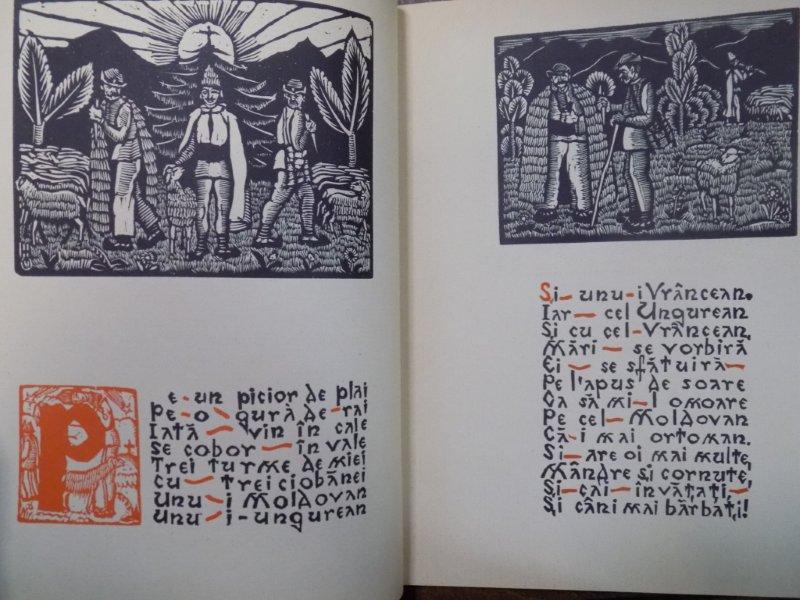 Pe-un picior de plai
Pe-o-gură de-rai
Iată vin în cale
Se cobor în vale
Trei turme de miei
Cu trei ciobănei
Unu-i Moldovan
Unu-i-ungurean
Și-unu-i Vrâncean.
Iar cel Ungurean
Și cu cel-Vrâncean
Mări se vorbiră
Ei se sfătuiră
Pe l'apus de soare
Ca să mi-l omoare
Pe cel Moldovan
Că-i mai ortoman.
Și-are oi mai multe,
Mândre și cornute,
Și-cai-învățați
Și câni mai bărbați!